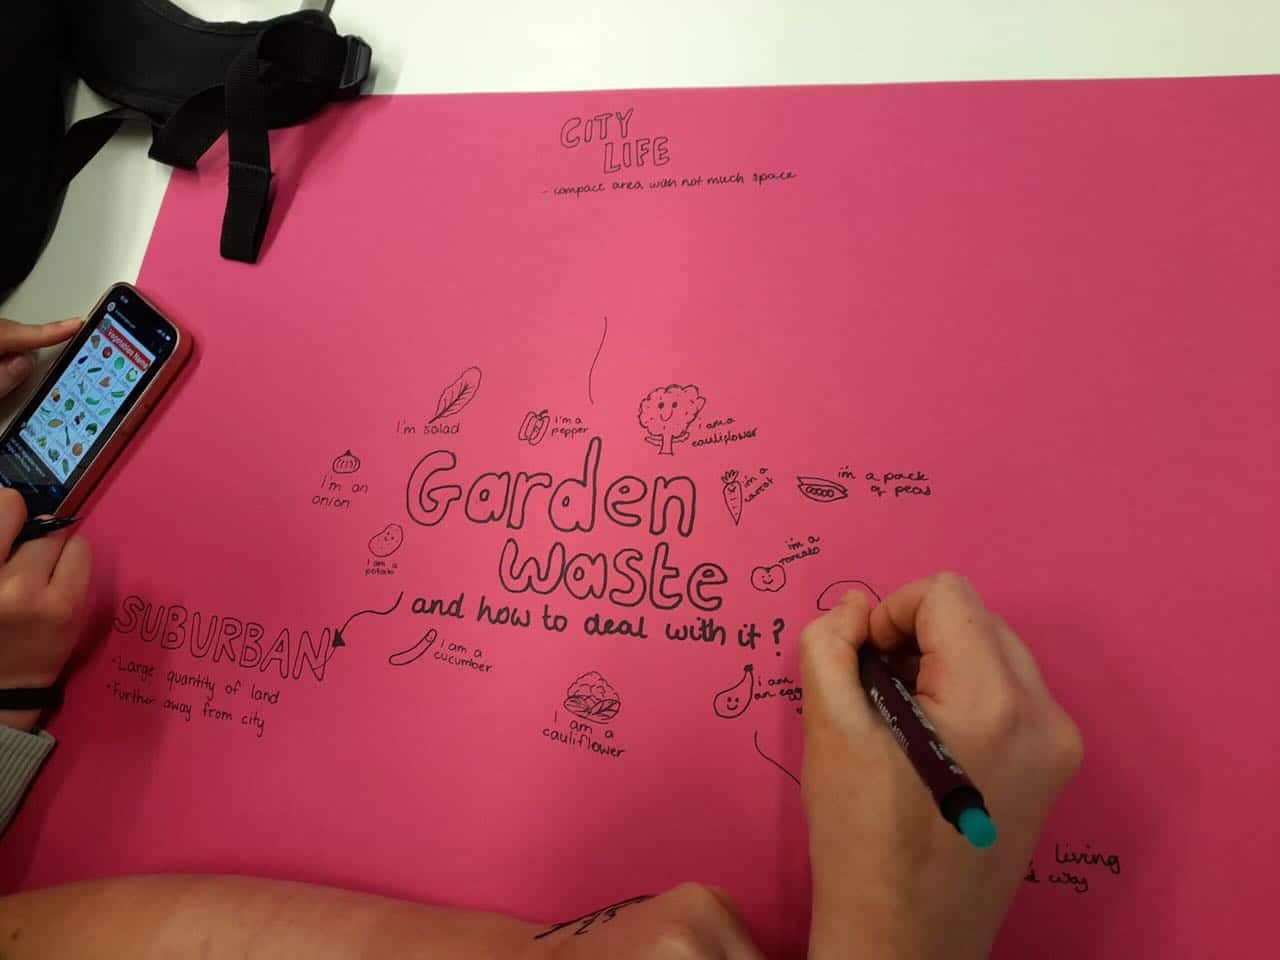 CITY
LIFE
- compact area with not much space
Vegetables Name
I'm salad
I'm a
pepper
I am a
cauliflower
I'm an
onion
i'm a
carrot
i'm a pack
of peas
I am a
potato
i'm a
tomato
Garden
Waste
and how to deal with it?
SUBURBAN
• Large quantity of land
• Further away from city
I am a
cucumber
i am
an egg
I am a
cauliflower
FABER-CASTELL
living
way